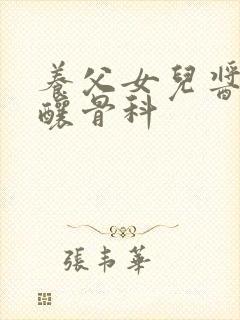 養父女兒醬
釀骨科
張韋華